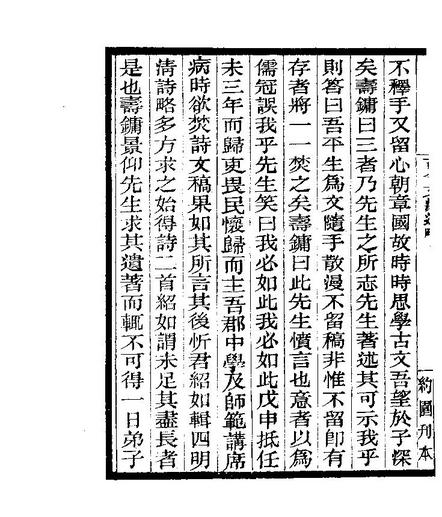 約園刊本
不釋手又留心朝章國故時時思學古文吾望於子深
矣壽鏞曰三者乃先生之所志先生著述其可示我乎
則答曰吾平生爲文隨手散漫不留稿非惟不留卽有
存者將一一焚之矣壽鏞曰此先生憤言也意者以爲
儒冠誤我乎先生笑曰我必如此我必如此戊申抵任
未三年而歸吏畏民懷歸而主吾郡中學及師範講席
病時欲焚詩文稿果如其所言其後忻君紹如輯四明
淸詩略多方求之始得詩二首紹如謂未足其盡長者
是也壽鏞景仰先生求其遺著而輒不可得一日弟子